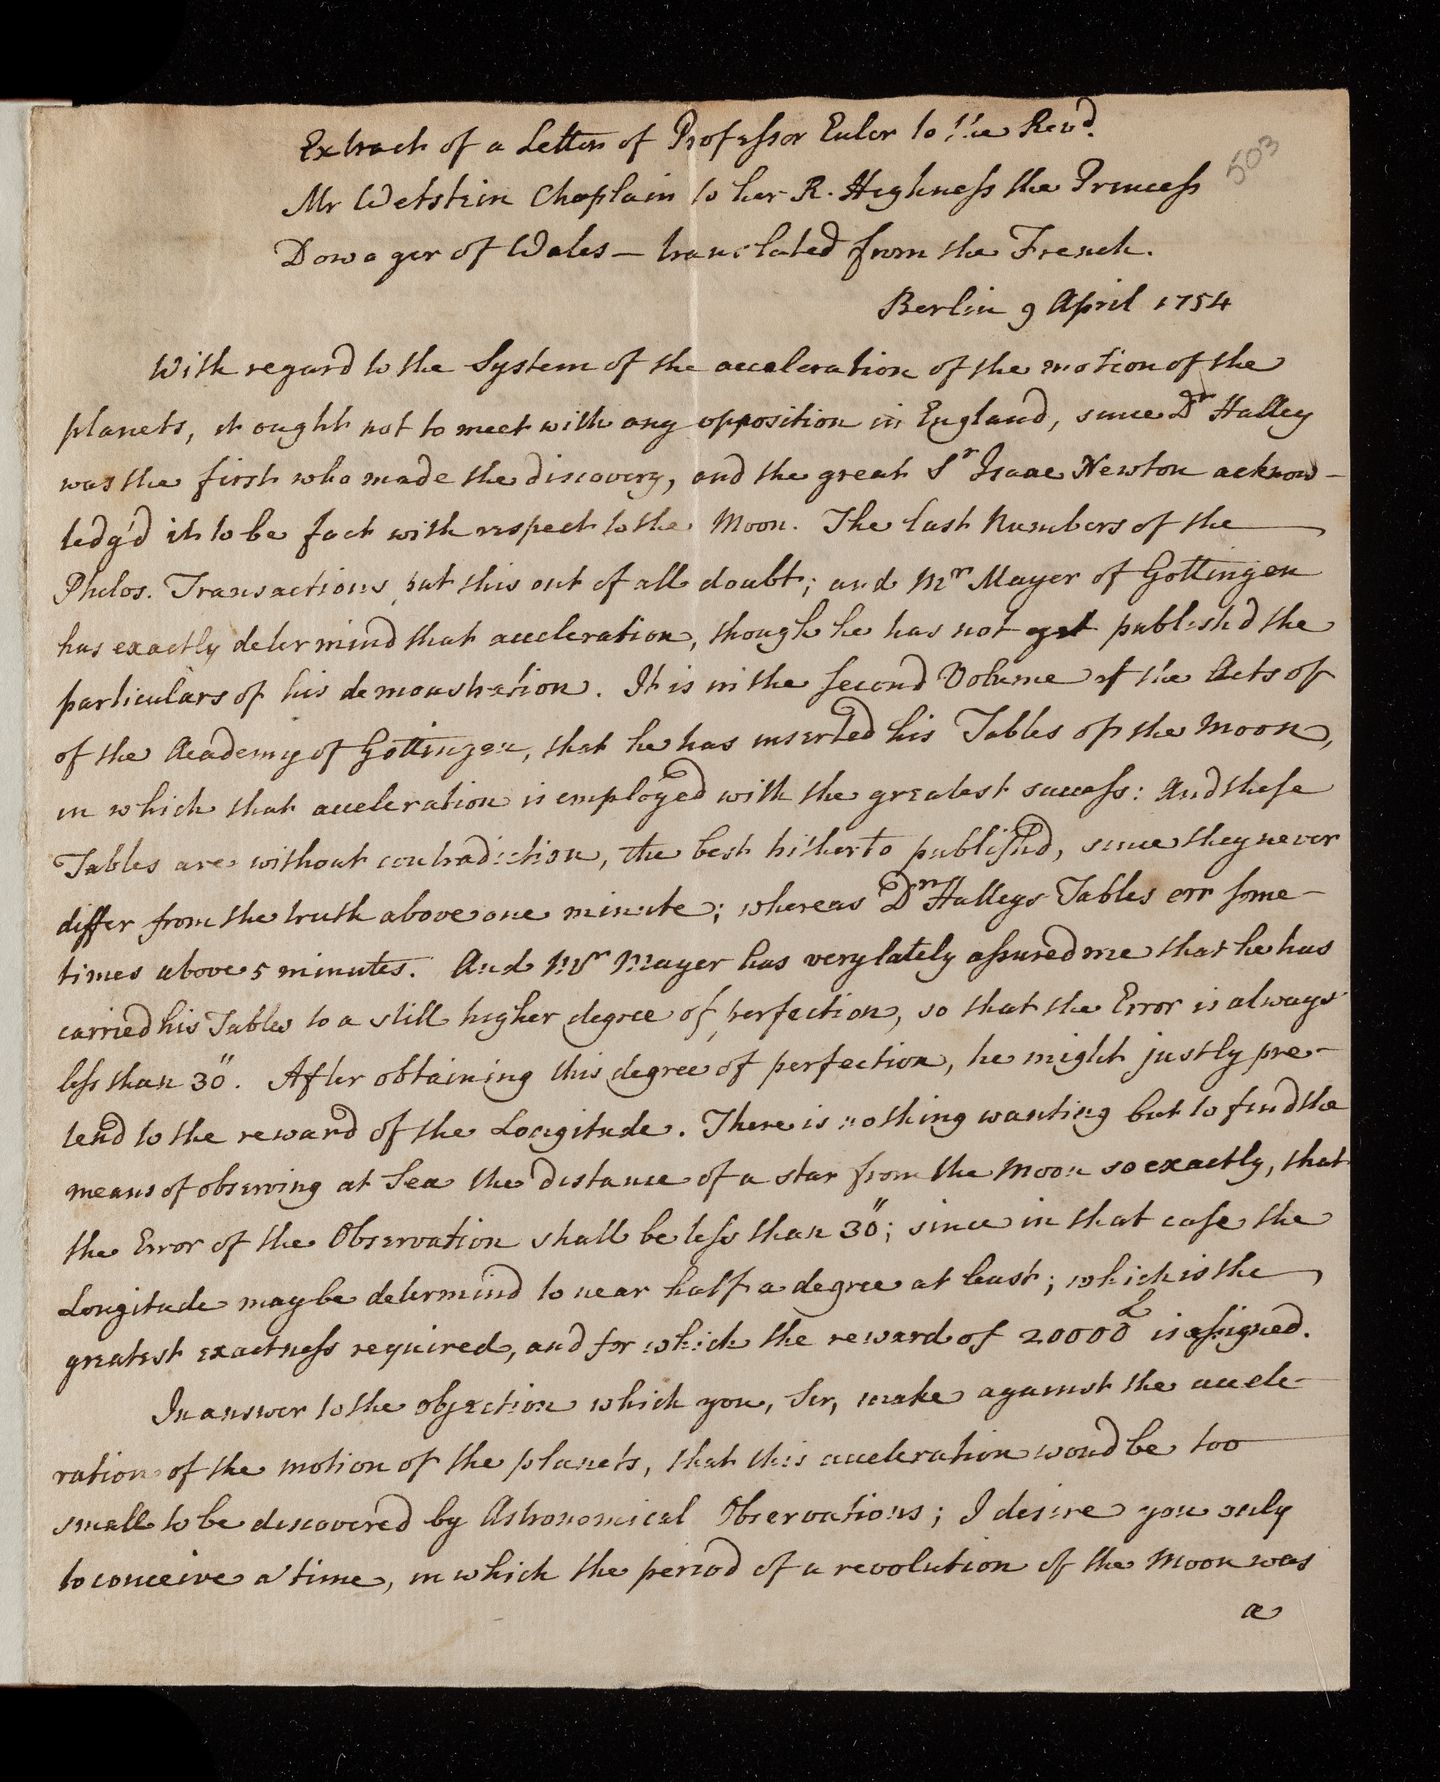 Extract of a Letter of Professor Euler to the Revd.
503
Mr Wetstein Chaplain to her R. Highness the Princess
Dowager of Wales — translated from the French.
Berlin 9 April 1754
With regard to the System of the acceleration of the motion of the
planets, it ought not to meet with any opposition in England, since Dr Halley
was the first who made the discovery, and the great Sr Isaac Newton acknow-
ledg'd it to be fact with respect to the Moon. The last Numbers of the
Philos. Transactions put this out of all doubt; and Mr Mayer of Gottingen
has exactly determind that acceleration, though he has not yet publish'd the
particulars of his demonstration. It is in the second Volume of the Acts of
of the Academy of Gottingen, that he has inserted his Tables of the Moon,
in which that acceleration is employed with the greatest success: And these
Tables are without contradiction, the best hitherto publish'd, since they never
differ from the truth above one minute; whereas Dr Halleys Tables err some-
times above 5 minutes. And Mr Mayer has very lately assured me that he has
carried his Tables to a still higher degree of perfection, so that the Error is always
less than 30". After obtaining this degree of perfection, he might justly pre-
tend to the reward of the Longitude. There is nothing wanting but to find the
means of observing at Sea the distance of a star from the Moon so exactly, that
the Error of the Observation shall be less than 30"; since in that case the
Longitude may be determind to near half a degree at least; which is the
greatest exactness required, and for which the reward of 20000£ is assigned.
In answer to the objection which you, Sir, make against the accele-
ration of the motion of the planets, that this acceleration woud be too
small to be discovered by Astronomical Observations; I desire you only
to conceive a time, in which the period of a revolution of the Moon was
a